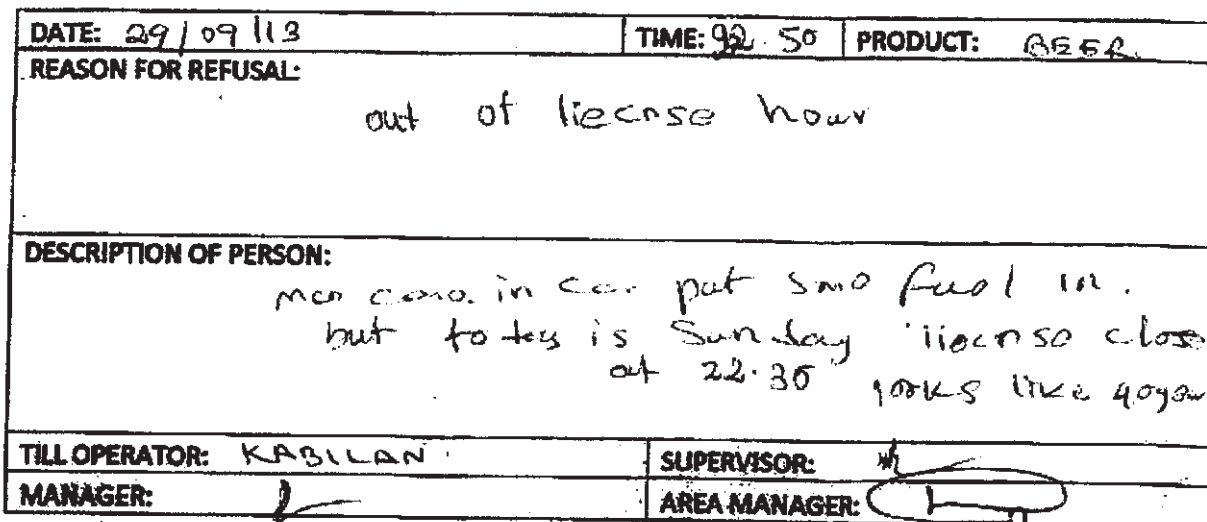 DATE: 29/09/13 TIME: 92.50 PRODUCT: BEER
REASON FOR REFUSAL:
out of liecnse hour
DESCRIPTION OF PERSON:
in car put fuel in.
but is Sunday liecnse close
at 22.30 looks like 40year
TILL OPERATOR: KABILAN SUPERVISOR:
MANAGER: AREA MANAGER: